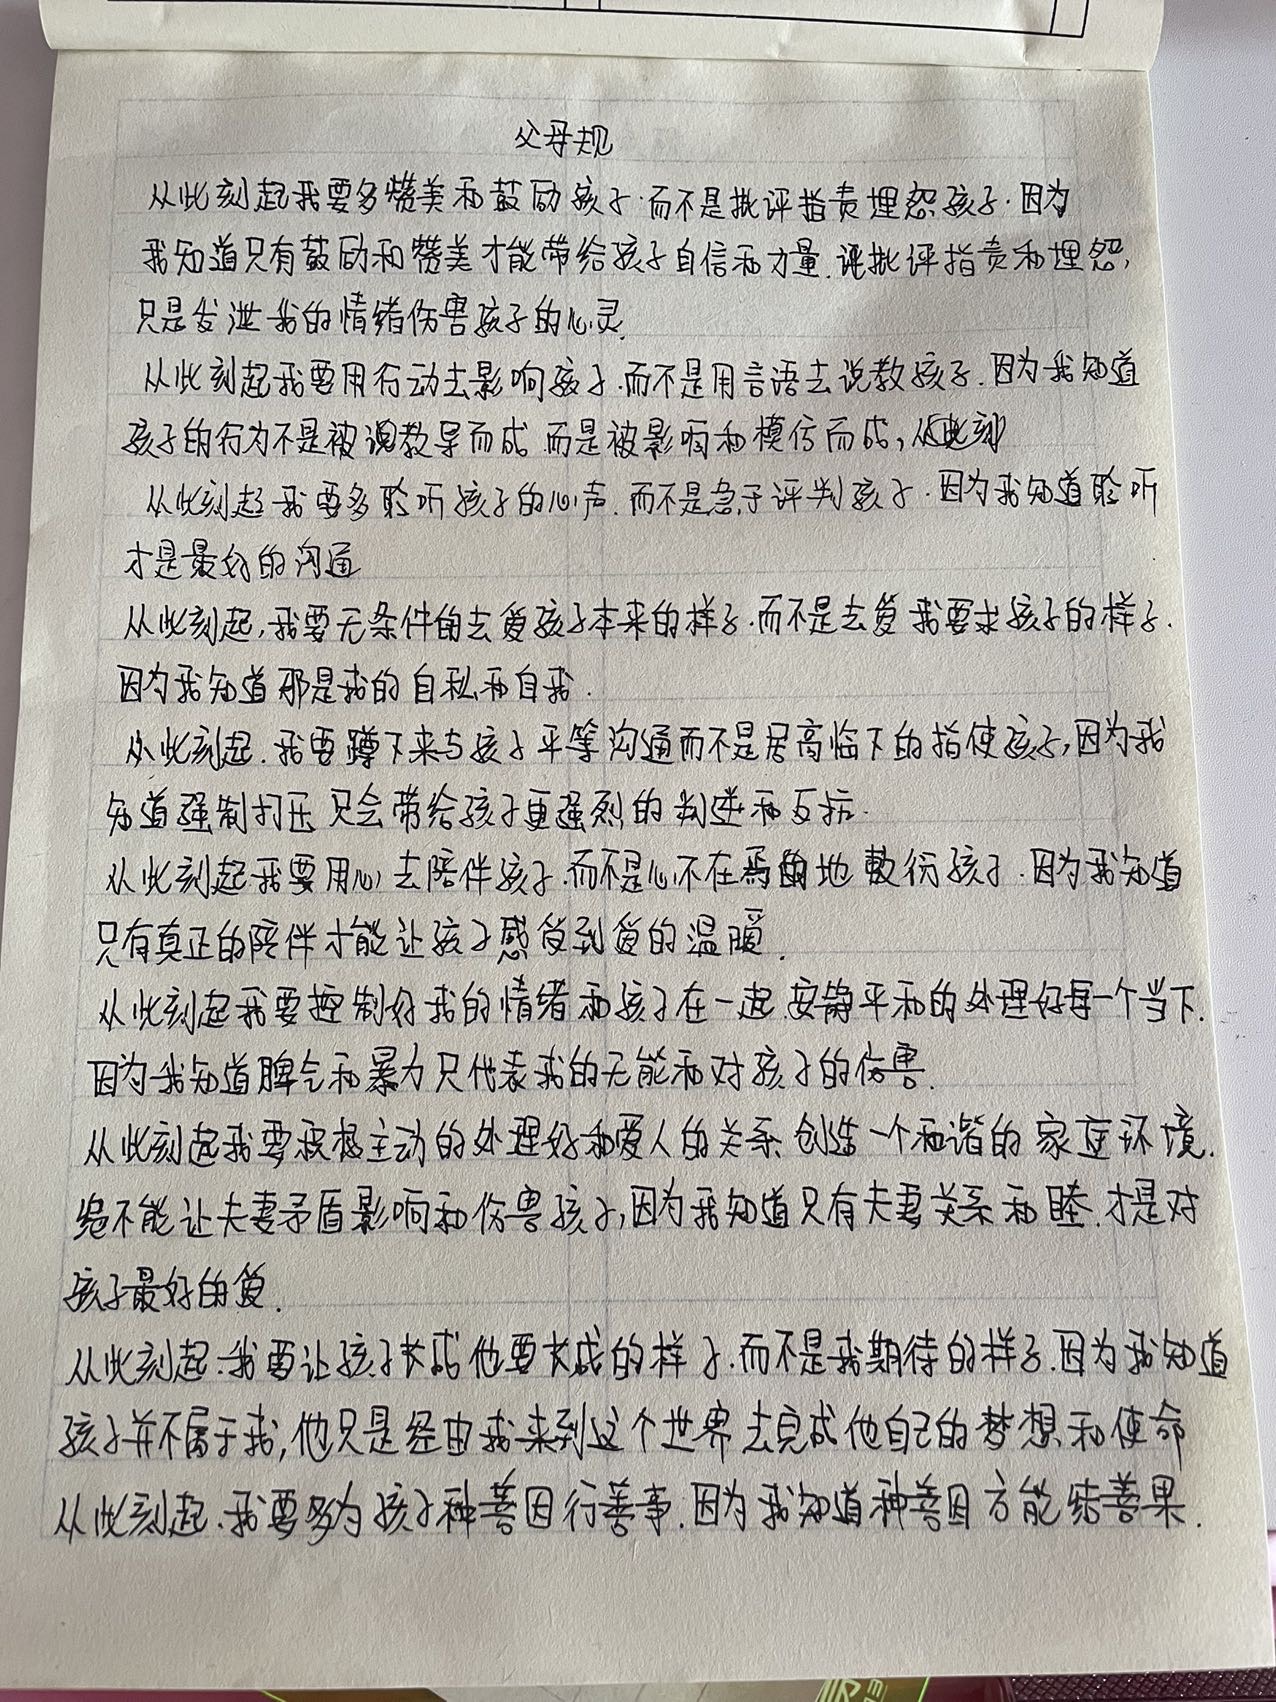 父母规
从此刻起我要多赞美和鼓励孩子.而不是批评指责埋怨孩子.因为
我知道只有鼓励和赞美才能带给孩子自信和力量.批评指责和埋怨,
只是发泄我的情绪伤害孩子的心灵.
从此刻起我要用行动去影响孩子.而不是用言语去说教孩子.因为我知道
孩子的行为不是被说教导而成.而是被影响和模仿而成,从此刻
从此刻起我要多聆听孩子的心声.而不是急于评判孩子.因为我知道聆听
才是最好的沟通
从此刻起,我要无条件的去爱孩子本来的样子.而不是去爱我要求孩子的样子.
因为我知道那是我的自私和自我.
从此刻起.我要蹲下来与孩子平等沟通而不是居高临下的指使孩子,因为我
知道强制打压只会带给孩子更强烈的判逆和反抗.
从此刻起我要用心去陪伴孩子.而不是心不在焉地敷衍孩子.因为我知道
只有真正的陪伴才能让孩子感受到爱的温暖.
从此刻起我要控制好我的情绪和孩子在一起.安静平和的处理好每一个当下.
因为我知道脾气和暴力只代表我的无能和对孩子的伤害.
从此刻起我要积极主动的处理好和爱人的关系创造一个和谐的家庭环境.
绝不能让夫妻矛盾影响和伤害孩子,因为我知道只有夫妻关系和睦.才是对
孩子最好的爱.
从此刻起.我要让孩子长成他要长成的样子.而不是我期待的样子.因为我知道
孩子并不属于我,他只是经由我来到这个世界去完成他自己的梦想和使命
从此刻起.我要多为孩子种善因行善事.因为我知道种善因方能结善果.